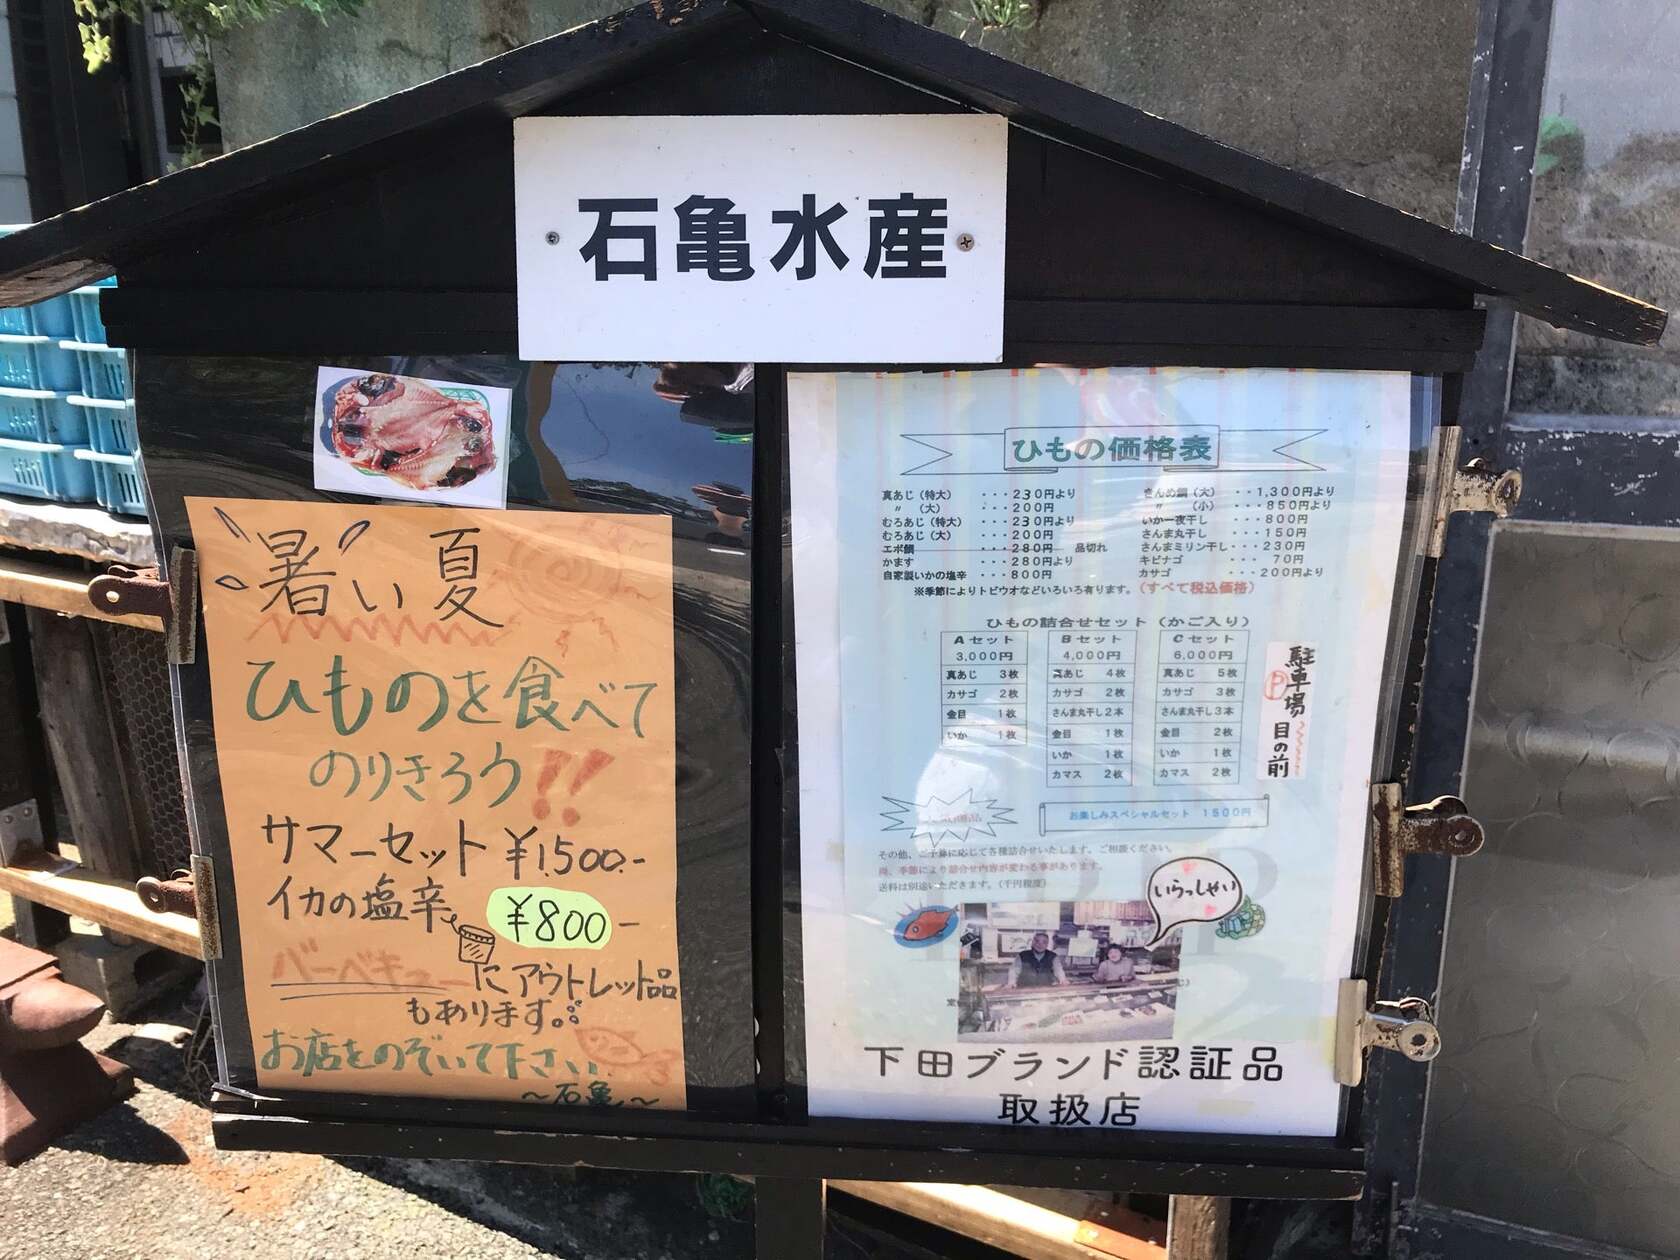 石亀水産
暑い夏
ひものを食べて
のりきろう!!
サマーセット ¥1,500.-
イカの塩辛 ¥800-
バーベキューにアウトレット品
もあります。
お店をのぞいて下さい
～石亀～
ひもの価格表
真あじ（特大） ・・・230円より
〃 （大） ・・・200円
むろあじ（特大） ・・・230円より
むろあじ（大） ・・・200円
エボ鯛 ・・・280円 品切れ
かます ・・・280円より
自家製いかの塩辛 ・・・800円
きんめ鯛（大） ・・1,300円より
〃 （小） ・・850円より
いか一夜干し ・・・800円
さんま丸干し ・・・150円
さんまミリン干し・・・230円
キビナゴ ・・・70円
カサゴ ・・・200円より
※季節によりトビウオなどいろいろ有ります。（すべて税込価格）
ひもの詰合せセット（かご入り）
Aセット
3,000円
真あじ 3枚
カサゴ 2枚
金目 1枚
いか 1枚
Bセット
4,000円
真あじ 4枚
カサゴ 2枚
さんま丸干し2本
金目 1枚
いか 1枚
カマス 2枚
Cセット
6,000円
真あじ 5枚
カサゴ 3枚
さんま丸干し3本
金目 2枚
いか 1枚
カマス 2枚
駐車場
P
目の前
お楽しみスペシャルセット 1500円
その他、ご予算に応じて各種詰合せいたします。ご相談ください。
尚、季節により詰合せ内容が変わる事があります。
送料は別途いただきます。（千円程度）
いらっしゃい
下田ブランド認証品
取扱店